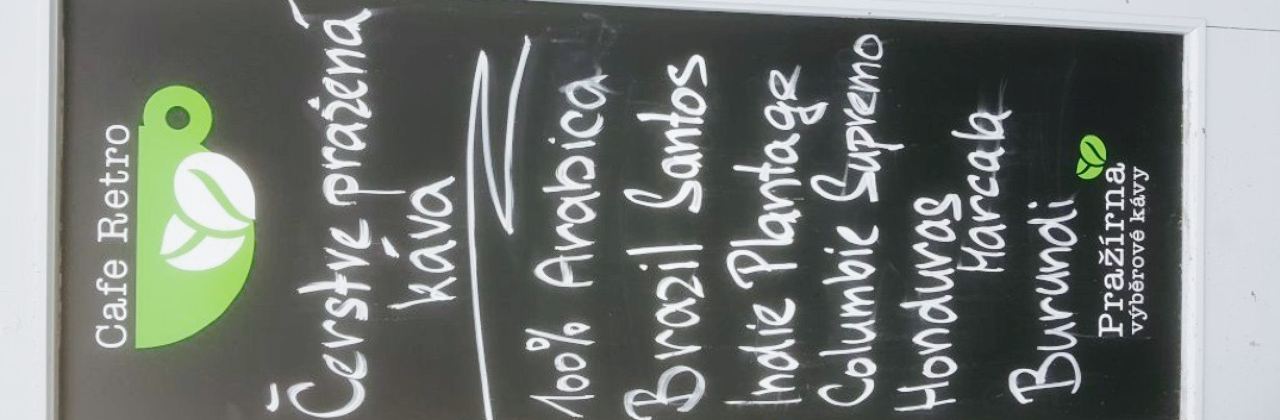 Cafe Retro
Čerstvě pražená
káva
100% Arabica
Brazil Santos
Indie Plantage
Columbie Supremo
Honduras
Marcala
Burundi
Pražírna
výběrové kávy